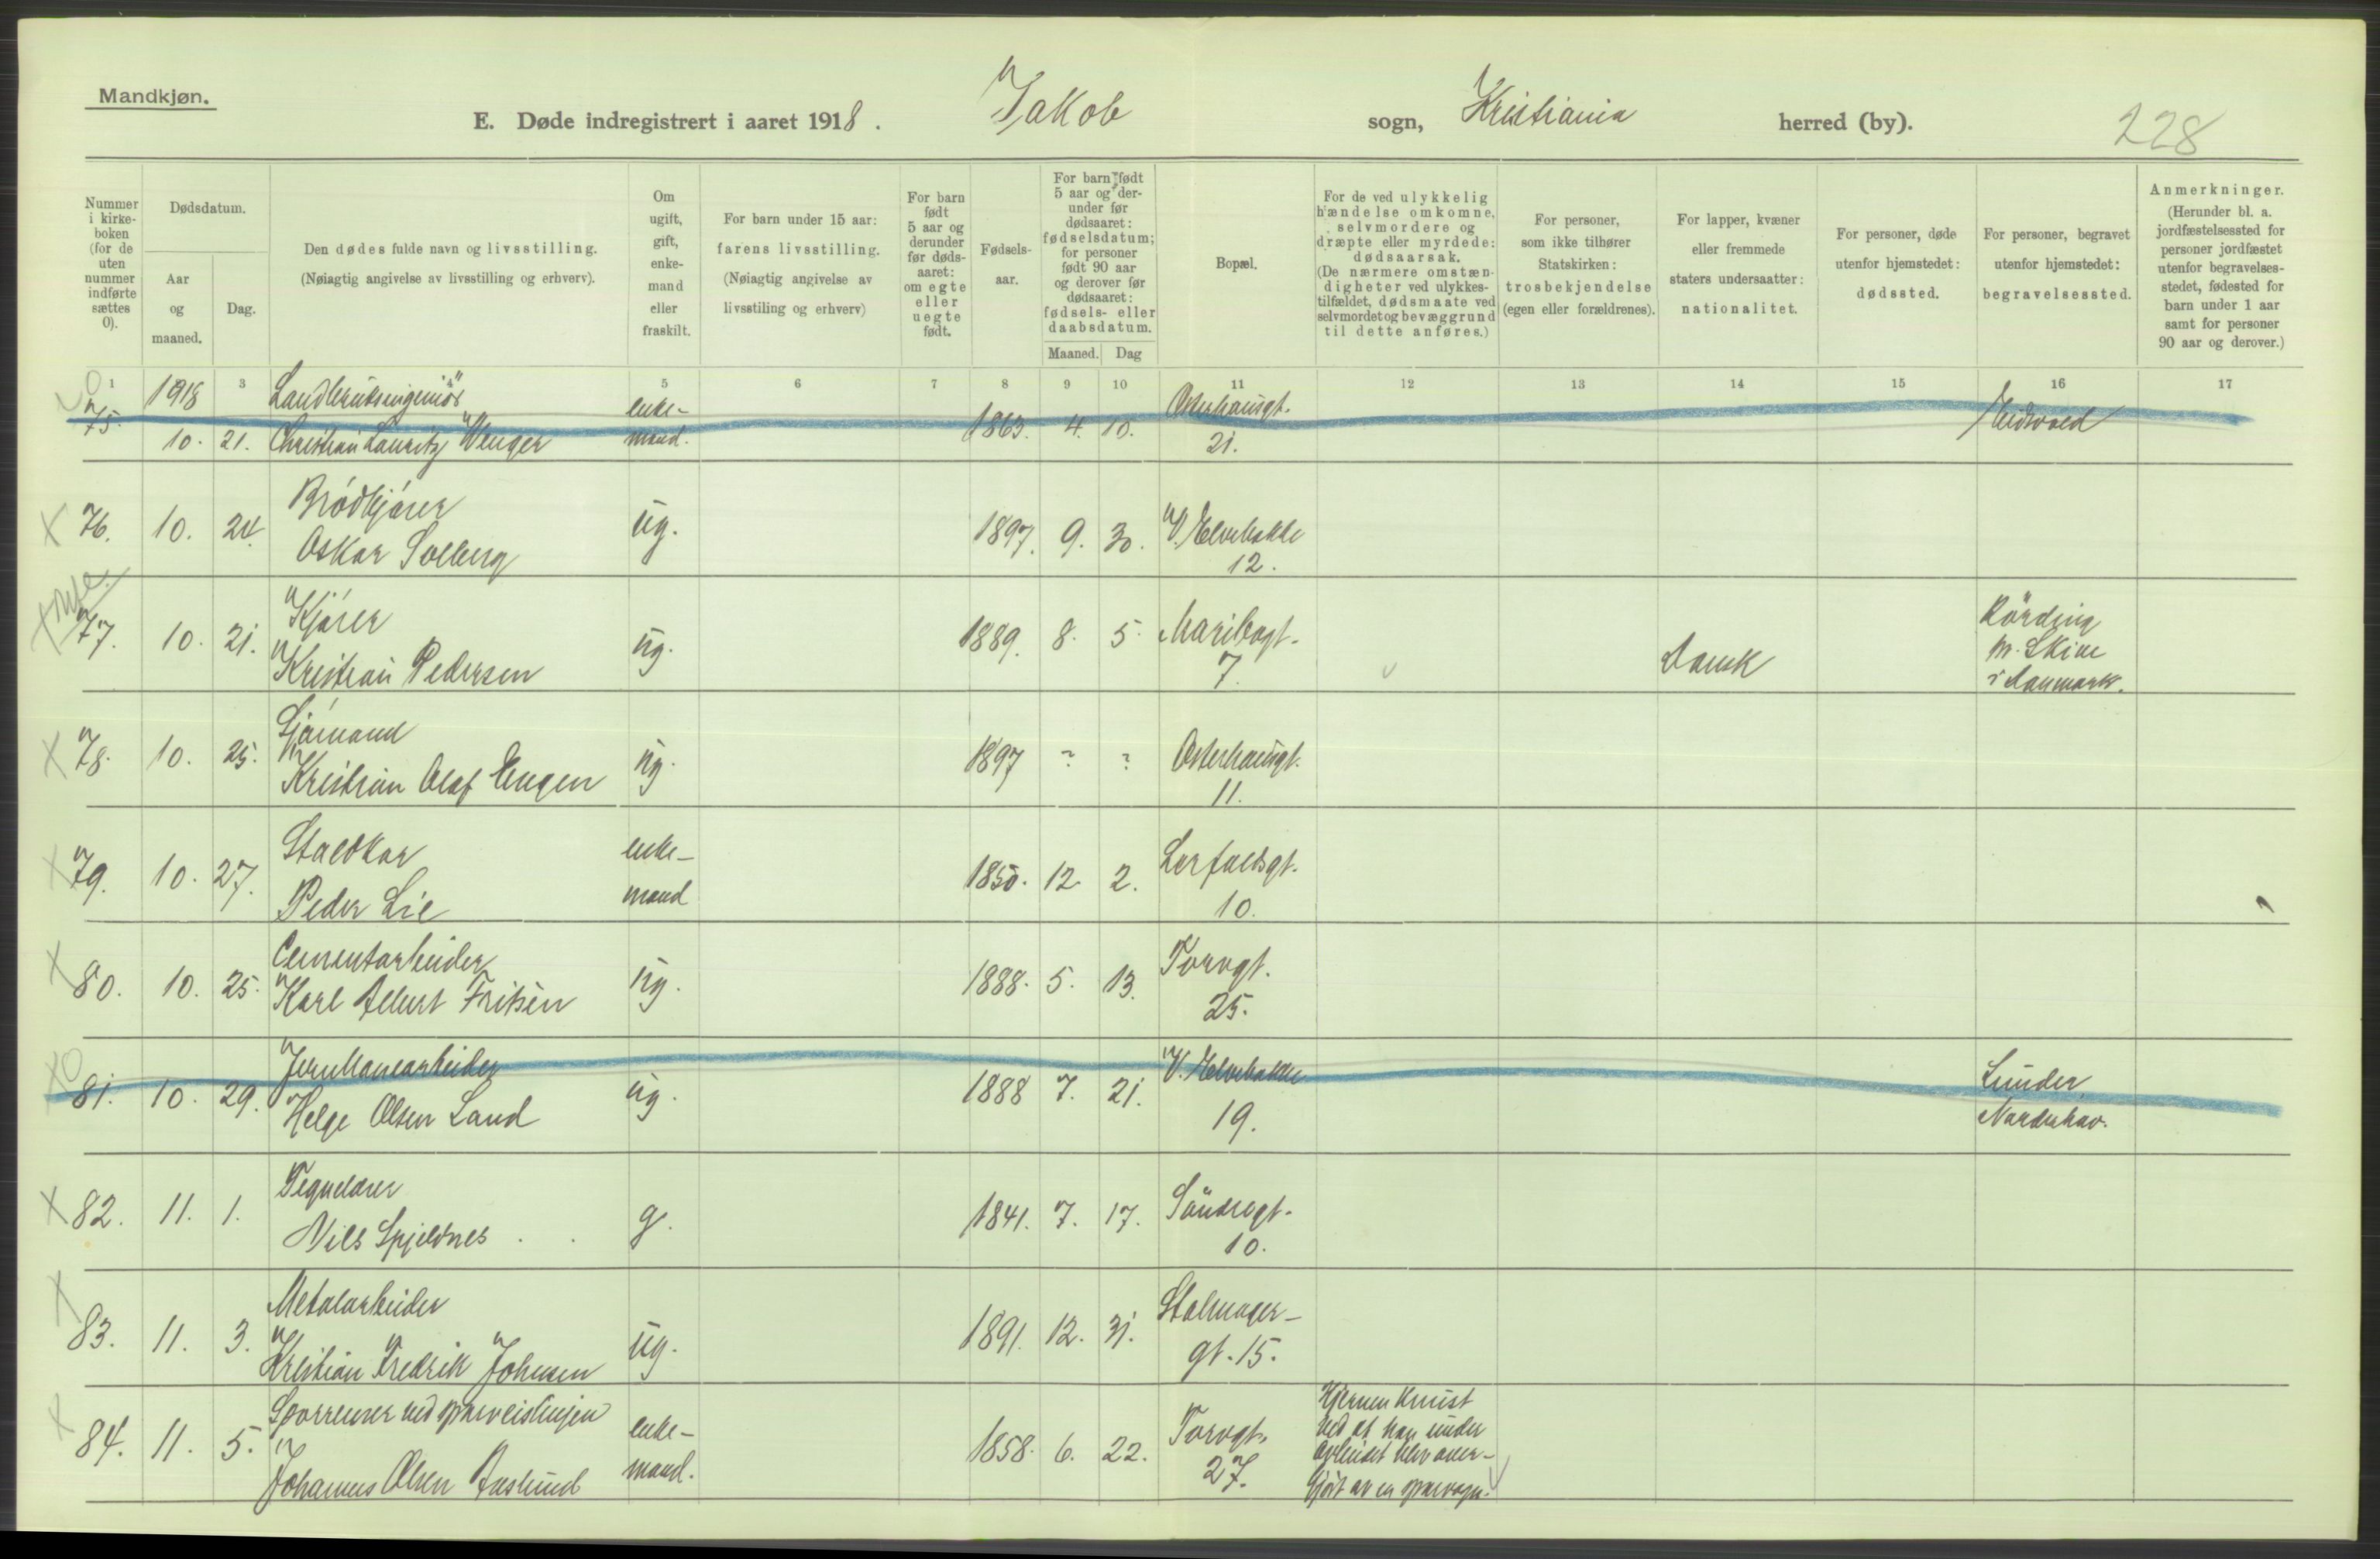 Mandkjøn.
E. Døde indregistrert i aaret 1918. Jakob sogn, Kristiania herred (by). 228
Nummer i kirkeboken (for de uten nummer indførte sættes 0).
Dødsdatum.
Aar og maaned.
Dag.
Den dødes fulde navn og livsstilling.
(Nøiagtig angivelse av livsstilling og erhverv).
Om ugift, gift, enkemand eller fraskilt.
For barn under 15 aar: farens livsstilling.
(Nøiagtig angivelse av livsstiling og erhverv)
For barn født 5 aar og derunder før dødsaaret: om egte eller uegte født.
Fødselsaar.
For barn født 5 aar og derunder før dødsaaret: fødselsdatum; for personer født 90 aar og derover før dødsaaret: fødsels- eller daabsdatum.
Maaned. Dag
Bopæl.
For de ved ulykkelig hændelse omkomne, selvmordere og dræpte eller myrdede: dødsaarsak.
(De nærmere omstændigheter ved ulykkestilfældet, dødsmaate ved selvmordet og bevæggrund til dette anføres.)
For personer, som ikke tilhører Statskirken: trosbekjendelse (egen eller forældrenes).
For lapper, kvæner eller fremmede staters undersaatter: nationalitet.
For personer, døde utenfor hjemstedet: dødssted.
For personer, begravet utenfor hjemstedet: begravelsessted.
Anmerkninger.
(Herunder bl. a. jordfæstelsessted for personer jordfæstet utenfor begravelsesstedet, fødested for barn under 1 aar samt for personer 90 aar og derover.)
1 3 4 5 6 7 8 9 10 11 12 13 14 15 16 17
0
75. 1918 10. 21. Landbruksingeniør
Christian Lauritz Wenger enkemand. 1863. 4. 10. Osterhausgt. 21. Eidsvold
X 76. 10. 24. Brødkjører
Oskar Solberg ug. 1897. 9. 30. V. Elvebakke 12.
X 77. 10. 21. Kjører
Kristian Pedersen ug. 1889. 8. 5. Maribogt. 7. Dansk Rörding
m. Skive
i Danmark.
X 78. 10. 25. Sjømand
Kristian Olaf Engen ug. 1897 ? ? Osterhausgt. 11.
X 79. 10. 27. Staldkar
Peder Lie enke-
mand 1850. 12. 2. Lerfaldsgt. 10.
X 80. 10. 25. Cementarbeider
Karl Albert Fritsen ug. 1888. 5. 13. Torvgt. 25.
X0 81. 10. 29. Jernbanearbeider
Helge Olsen Sand ug. 1888 7. 21. V. Elvebakke 19. Lunder
Norderhov.
X 82. 11. 1. Tegnelærer
Nils Spjeldnes g. 1841. 7. 17. Söndregt. 10.
X 83. 11. 3. Metalarbeider
Kristian Fredrik Johnsen ug. 1891. 12. 31. Stolmager-
gt. 15.
X 84. 11. 5. Sporrenser ved sporveislinjen
Johannes Olsen Aaslund enke-
mand. 1858. 6. 22. Torvgt. 27. Hjernen knust
ved at han under
arbeidet blev over-
kjört av en sporvogn.